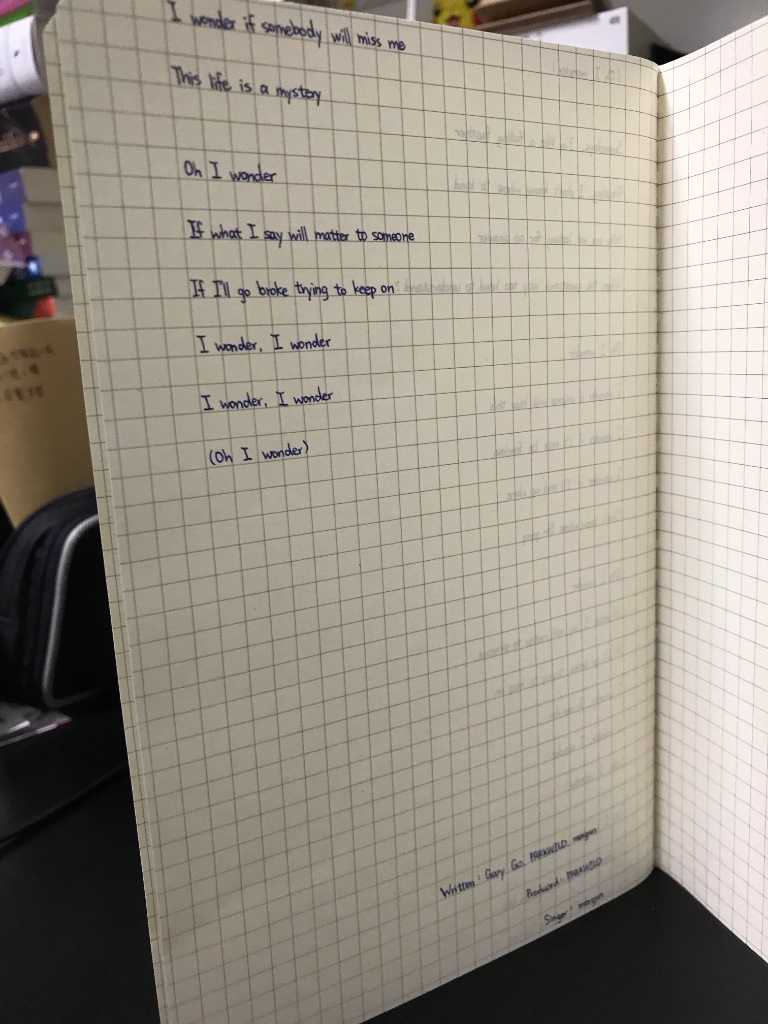 I wonder if somebody will miss me
This life is a mystery
Oh I wonder
If what I say will matter to someone
If I'll go broke trying to keep on
I wonder, I wonder
I wonder, I wonder
(Oh I wonder)
Written: Gary Go, PARKWILD, morgan
Produced: PARKWILD
Singer: morgan